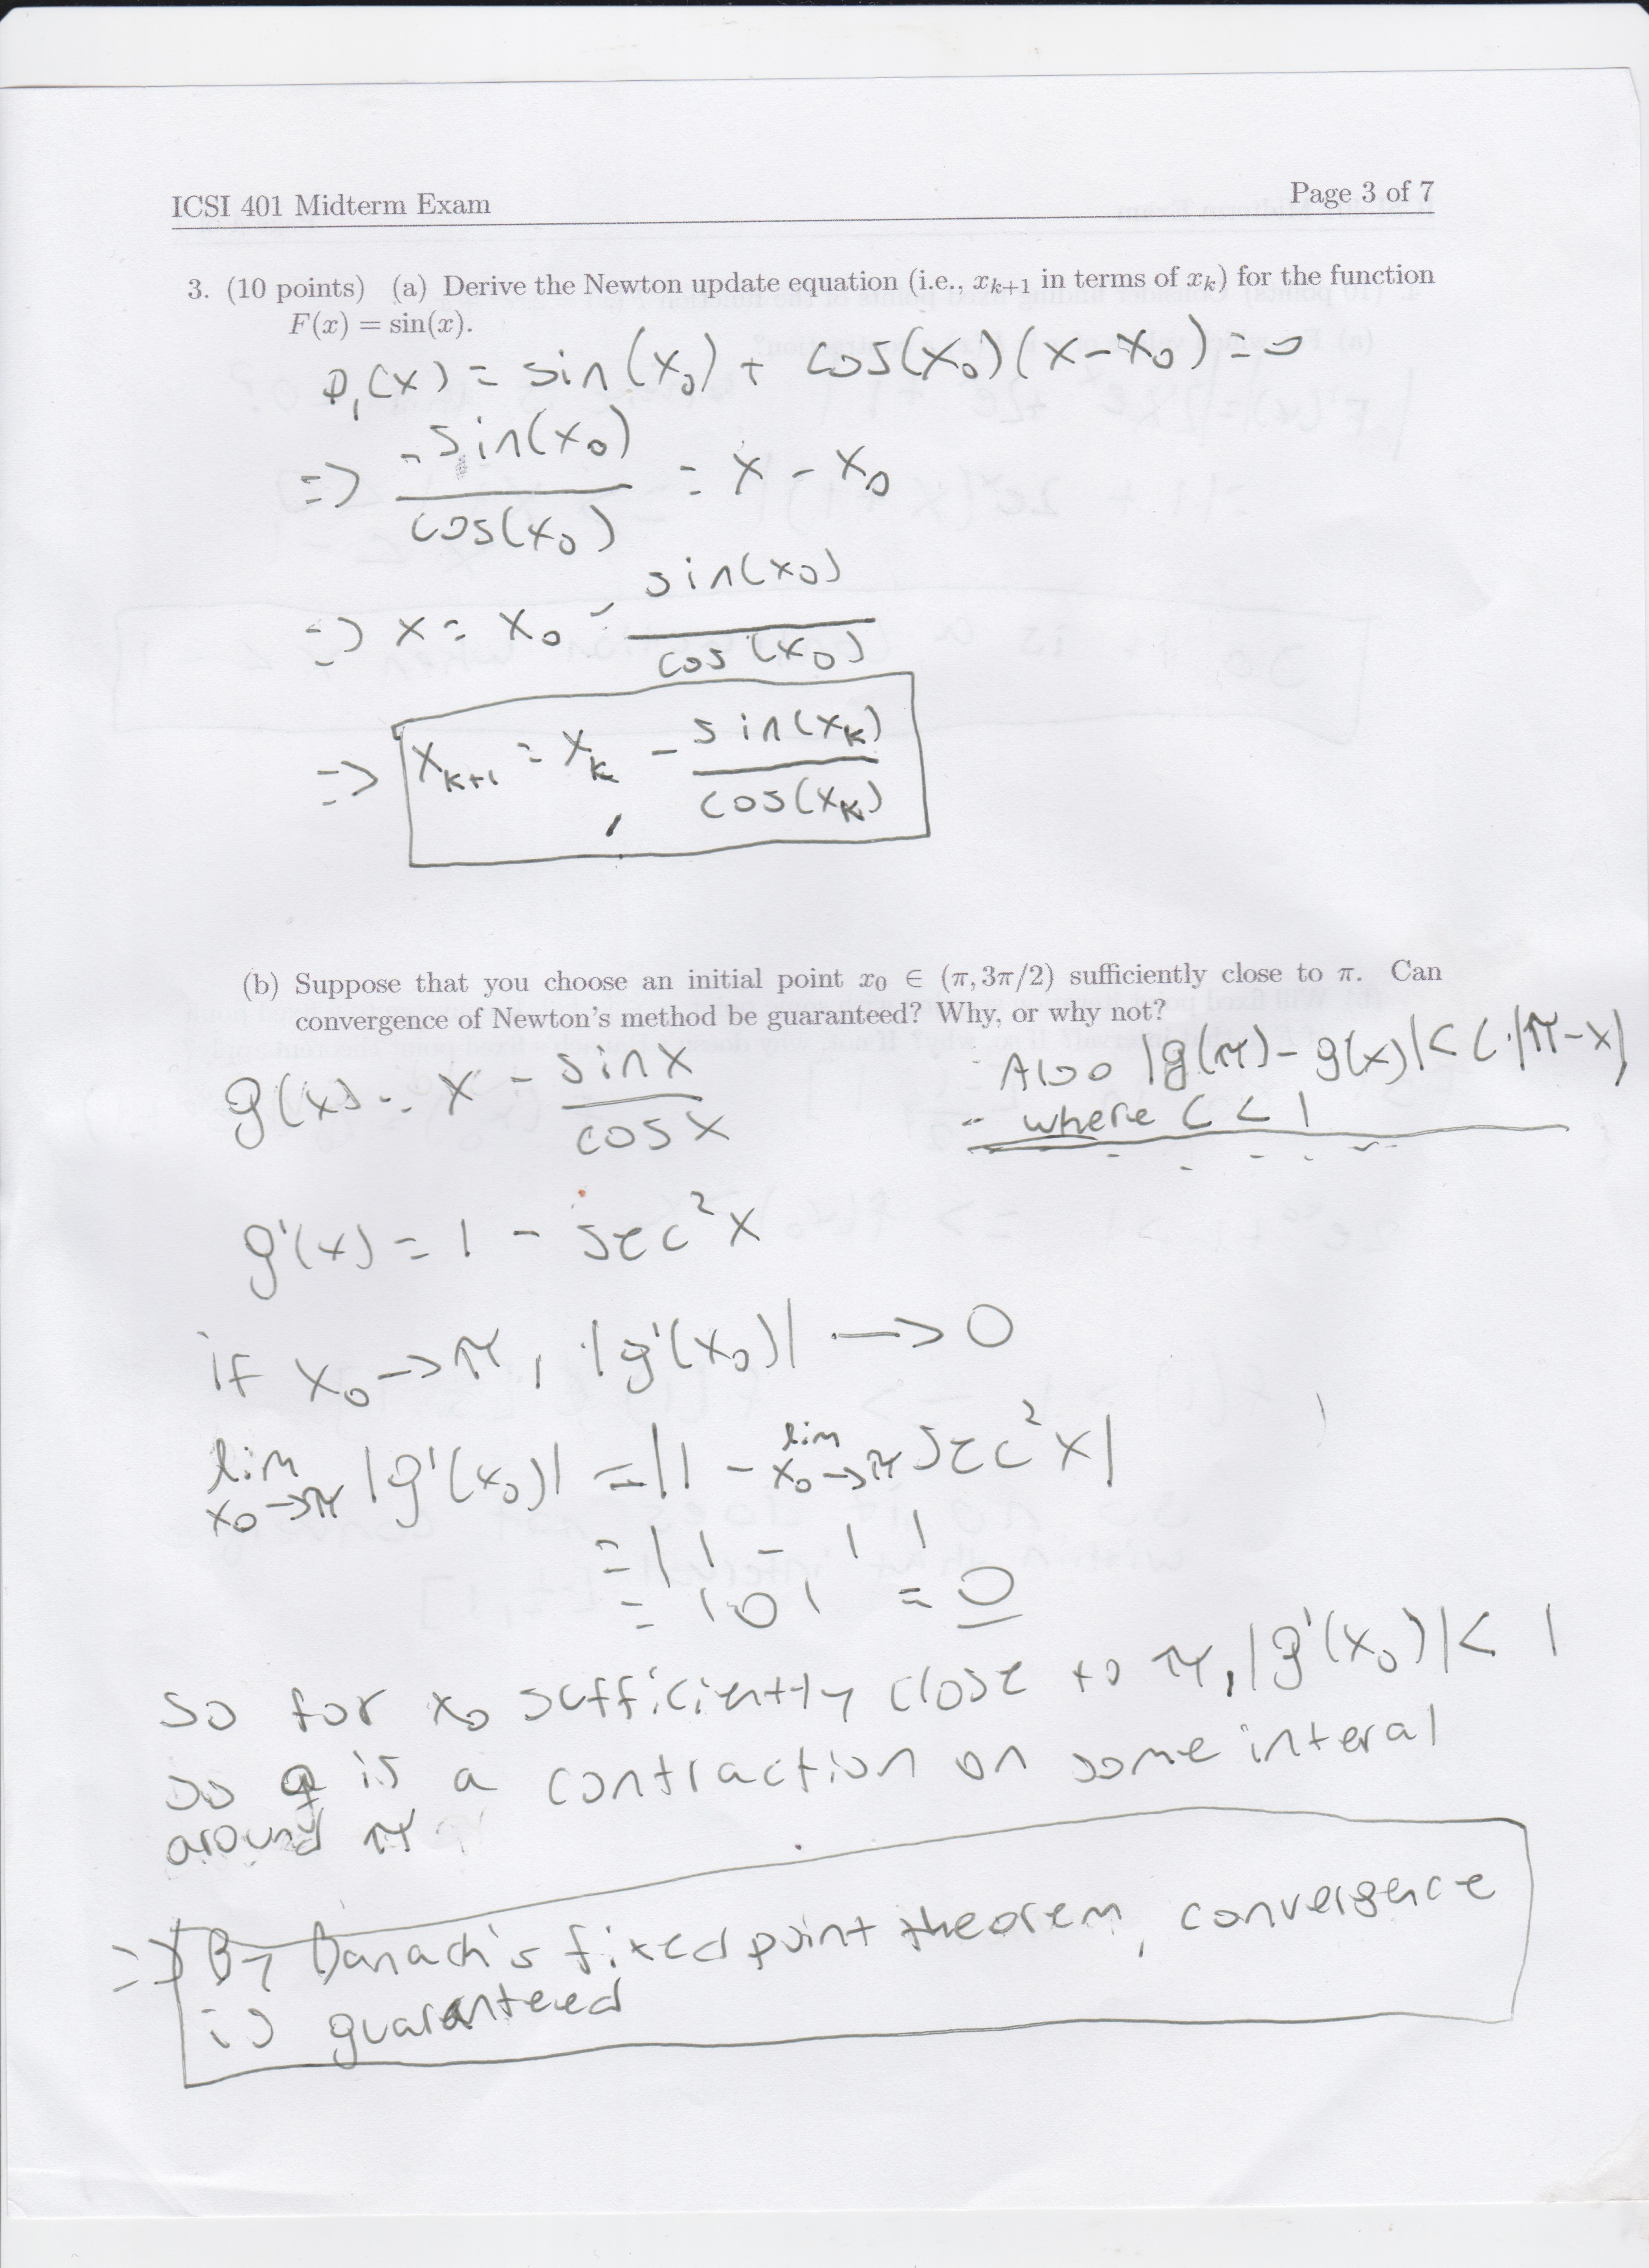 ICSI 401 Midterm Exam
Page 3 of 7
3. (10 points) (a) Derive the Newton update equation (i.e., x_{k+1} in terms of x_k) for the function
F(x) = sin(x).
P_1(x) = sin(x_0) + cos(x_0)(x-x_0) = 0
=> -sin(x_0)/cos(x_0) = x - x_0
=> x = x_0 - sin(x_0)/cos(x_0)
=> x_{k+1} = x_k - sin(x_k)/cos(x_k)
(b) Suppose that you choose an initial point x_0 ∈ (π, 3π/2) sufficiently close to π. Can
convergence of Newton's method be guaranteed? Why, or why not?
Also |g(π) - g(x)| < C·|π-x|,
where C < 1
g(x) = x - sin x/cos x
g'(x) = 1 - sec²x
if x_0 -> π, |g'(x_0)| -> 0
lim x_0->π |g'(x_0)| = |1 - lim x_0->π sec²x|
= |1 - 1|
= |0| = 0
so for x_0 sufficiently close to π, |g'(x_0)| < 1
so g is a contraction on some interal
around π
=> By Banach's fixed point theorem, convergence
is guaranteed